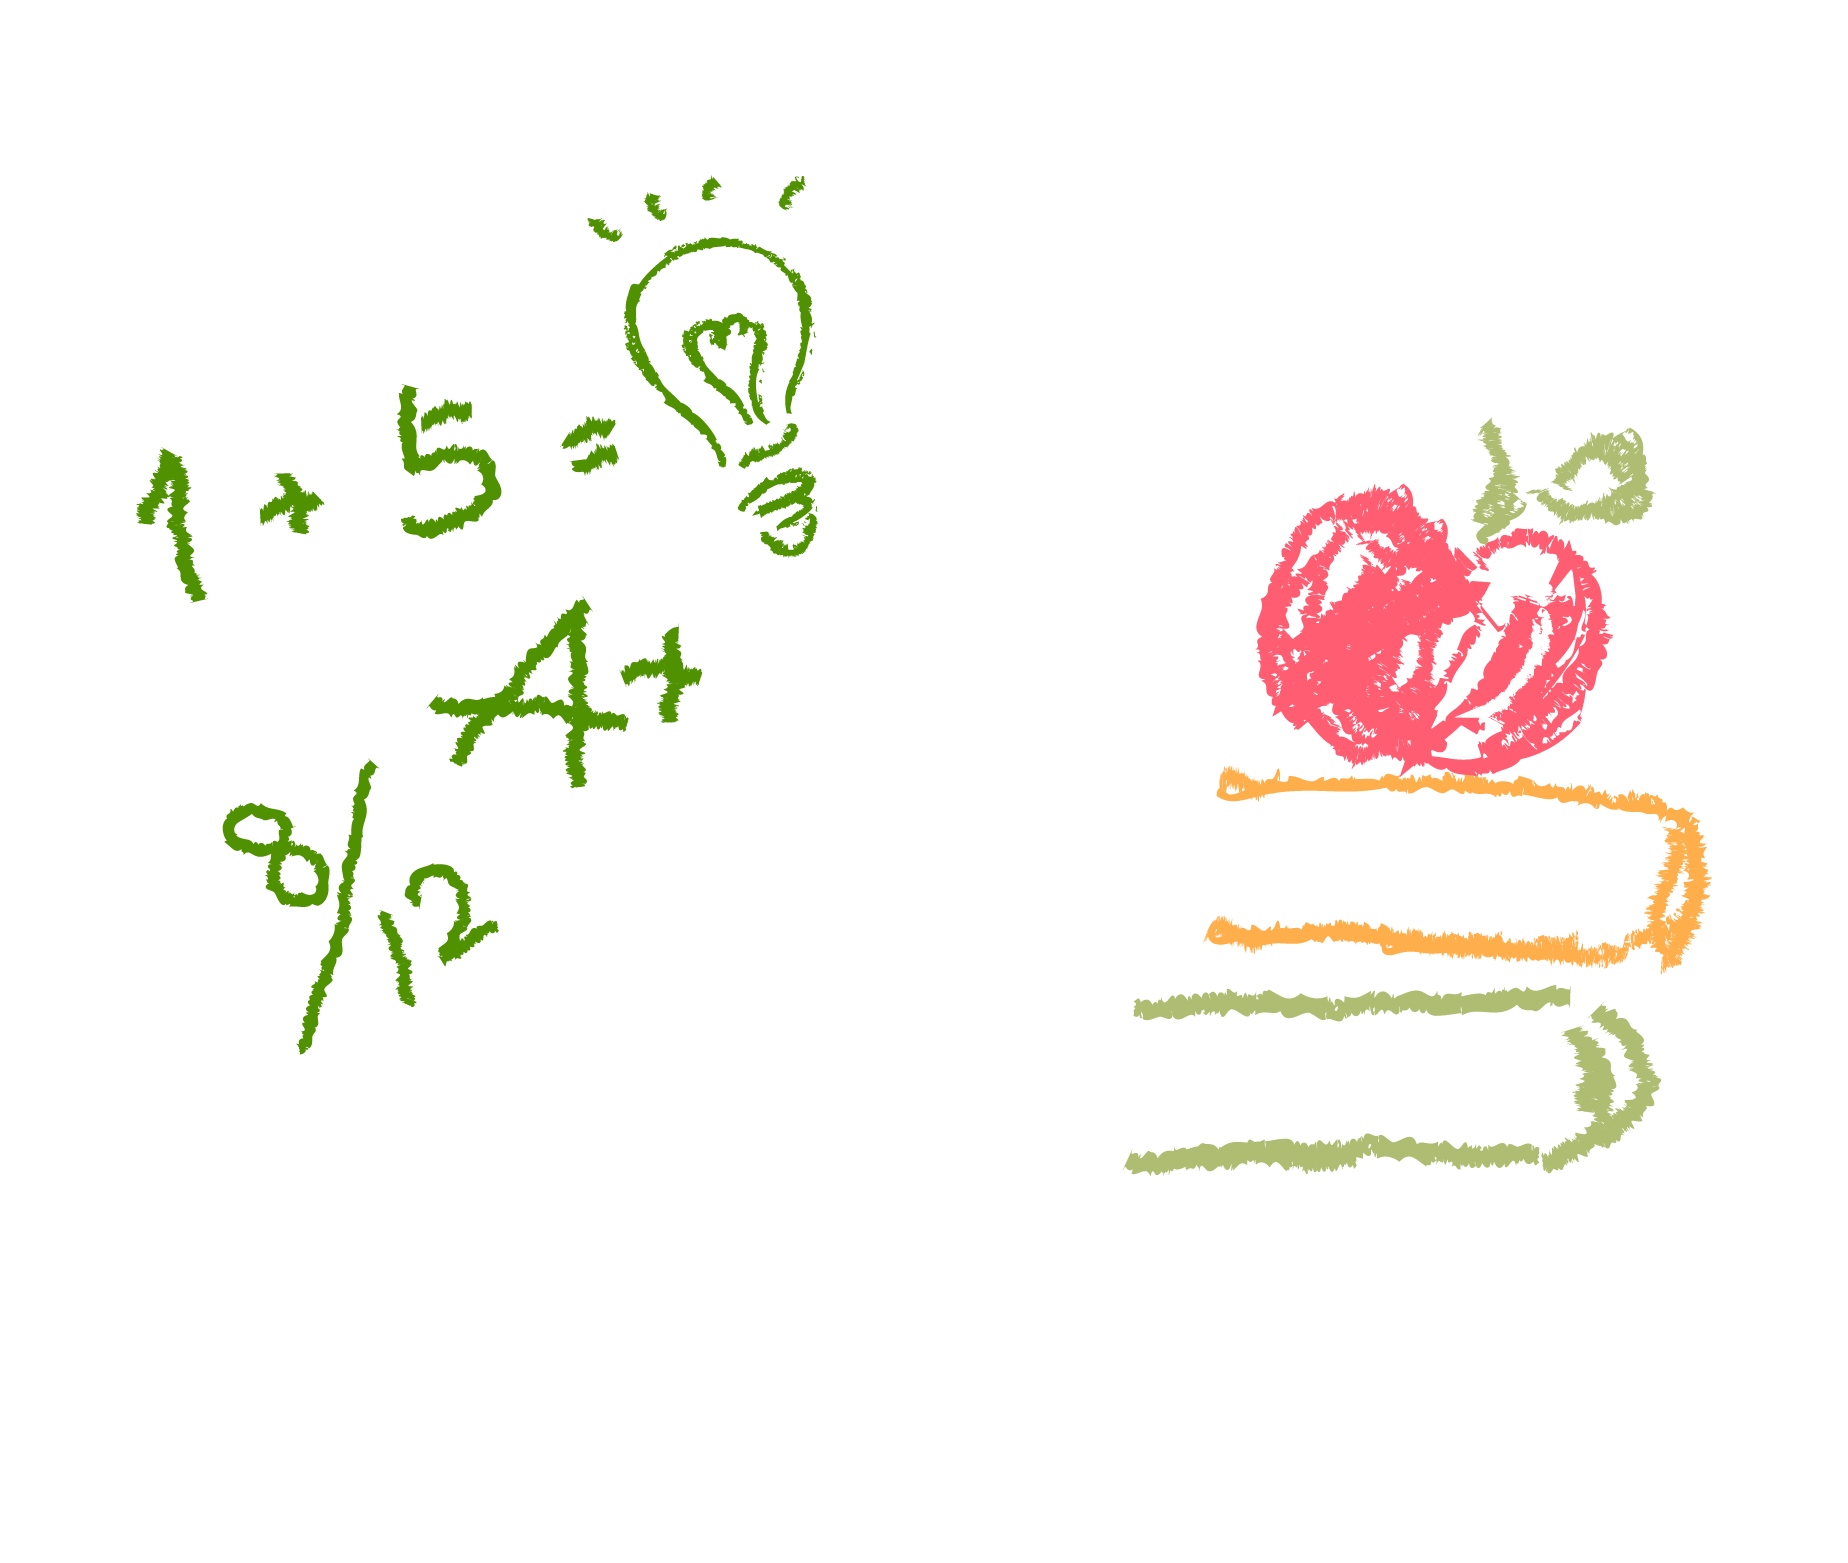 1 + 5 =
A+
8/12